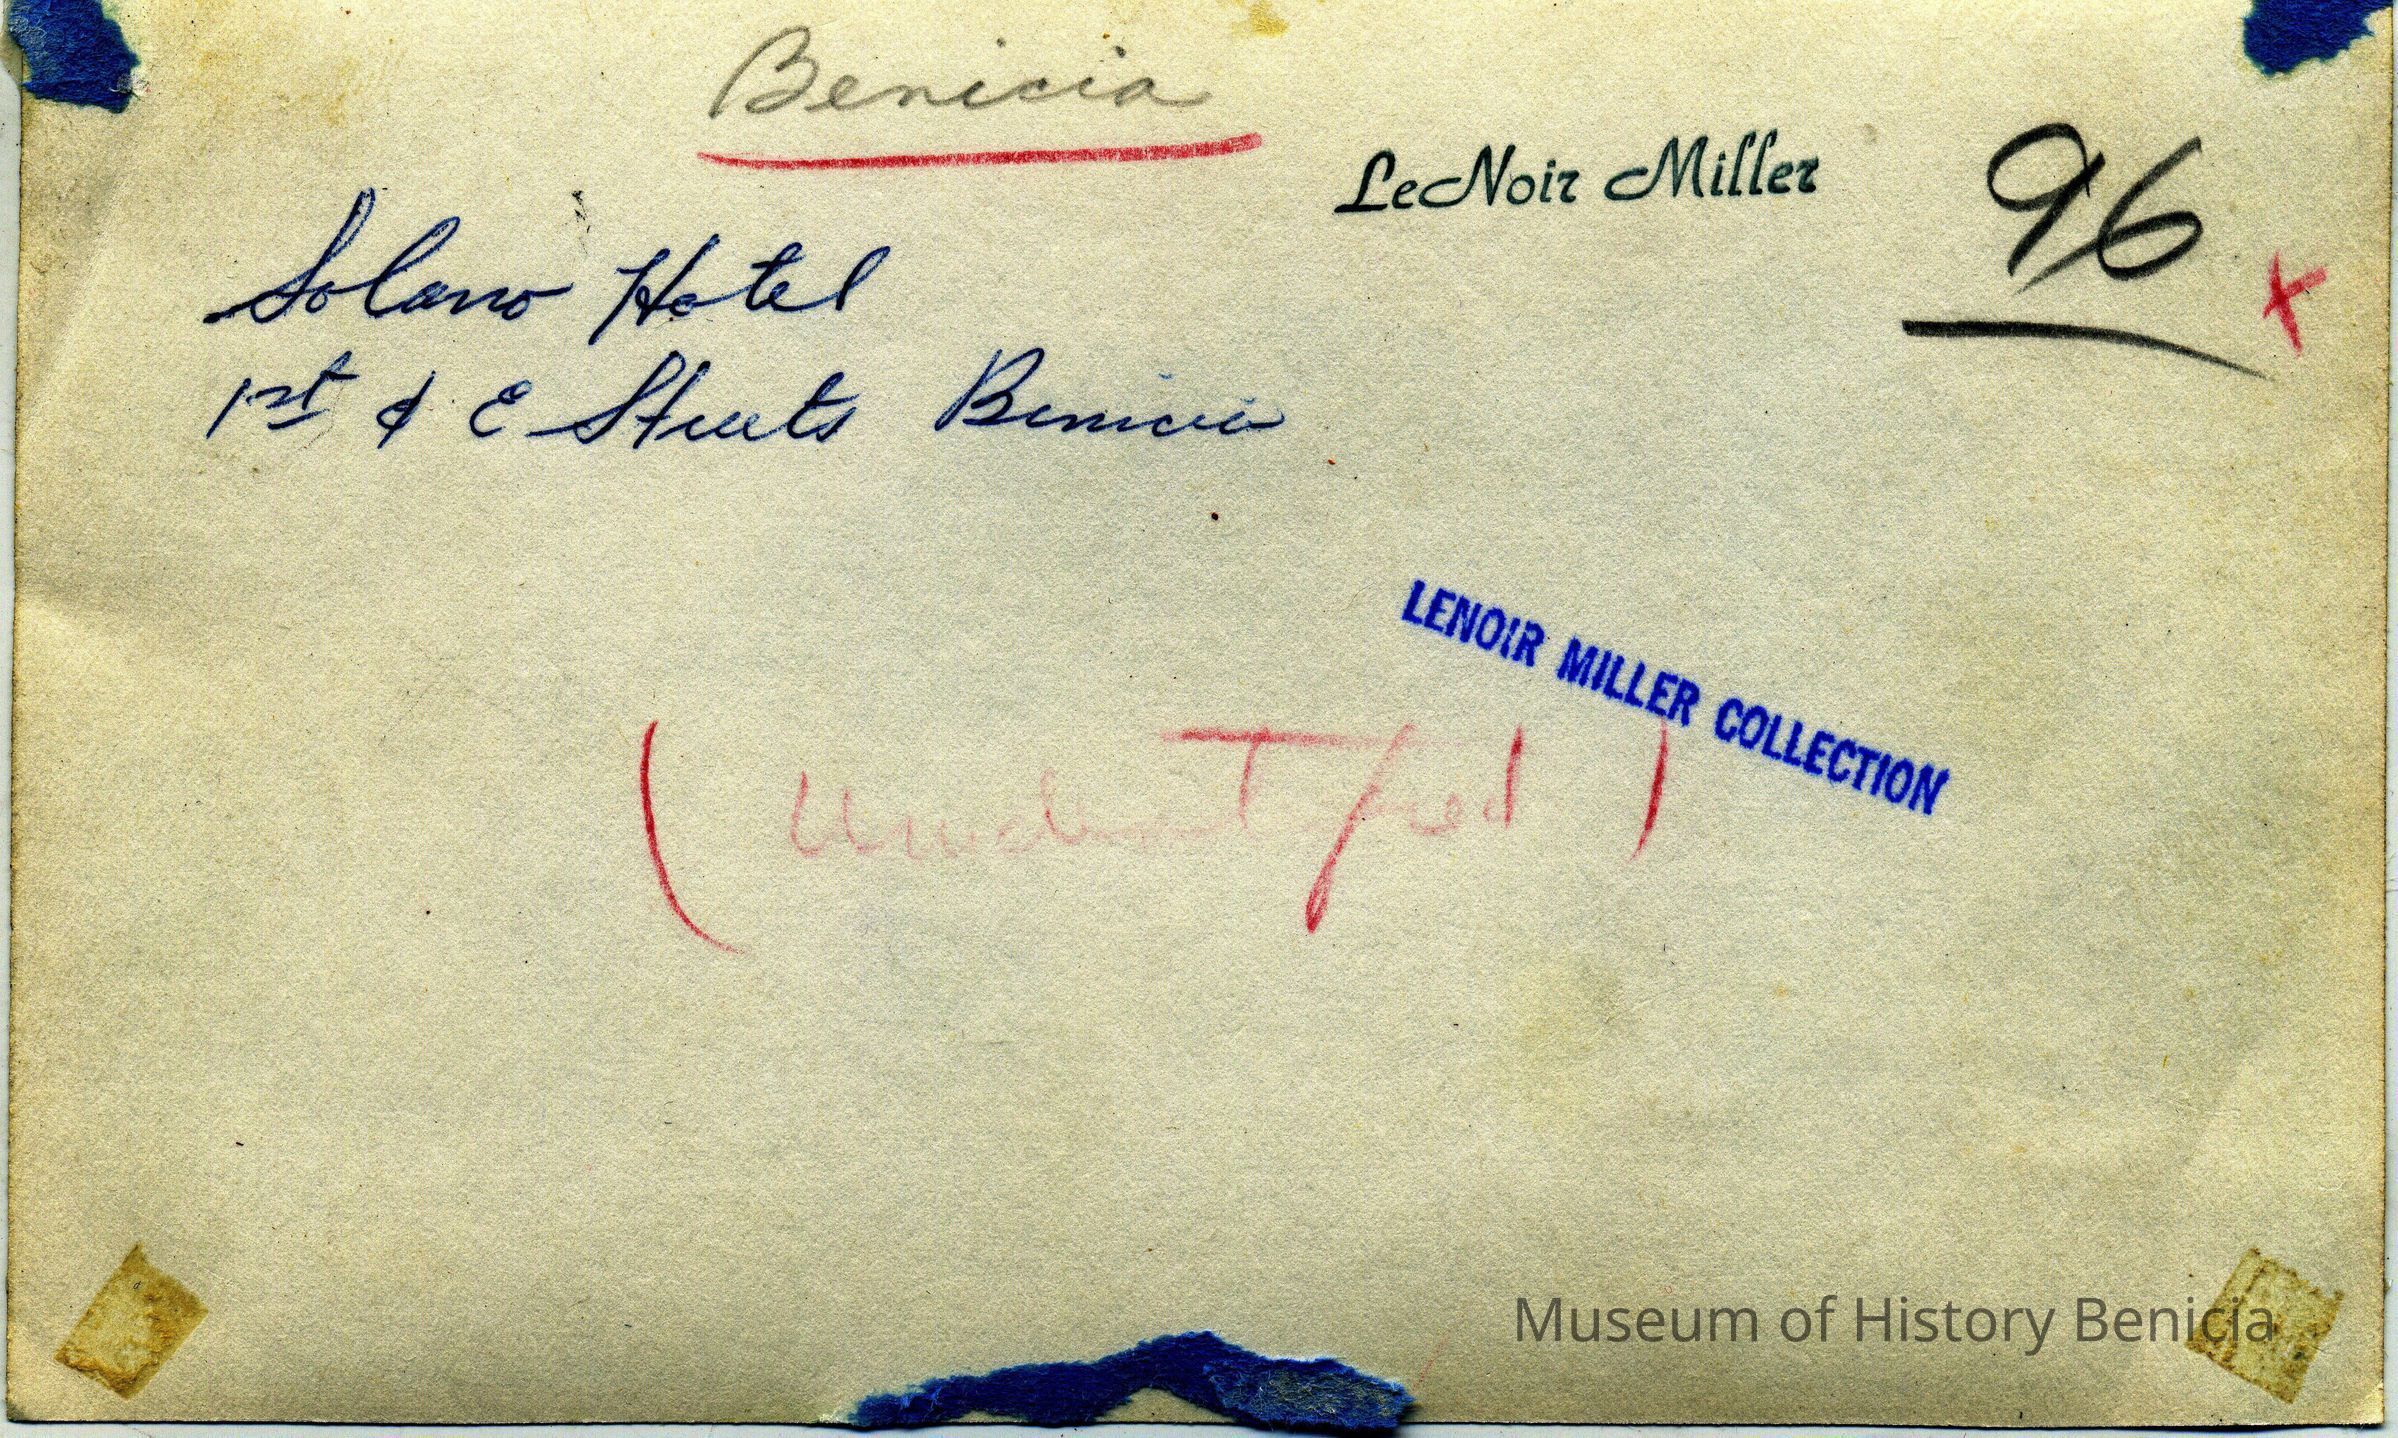 Benicia
LeNoir Miller
96
x
Solano Hotel
1st & E Streets Benicia
LENOIR MILLER COLLECTION
(Unidentified)
Museum of History Benicia